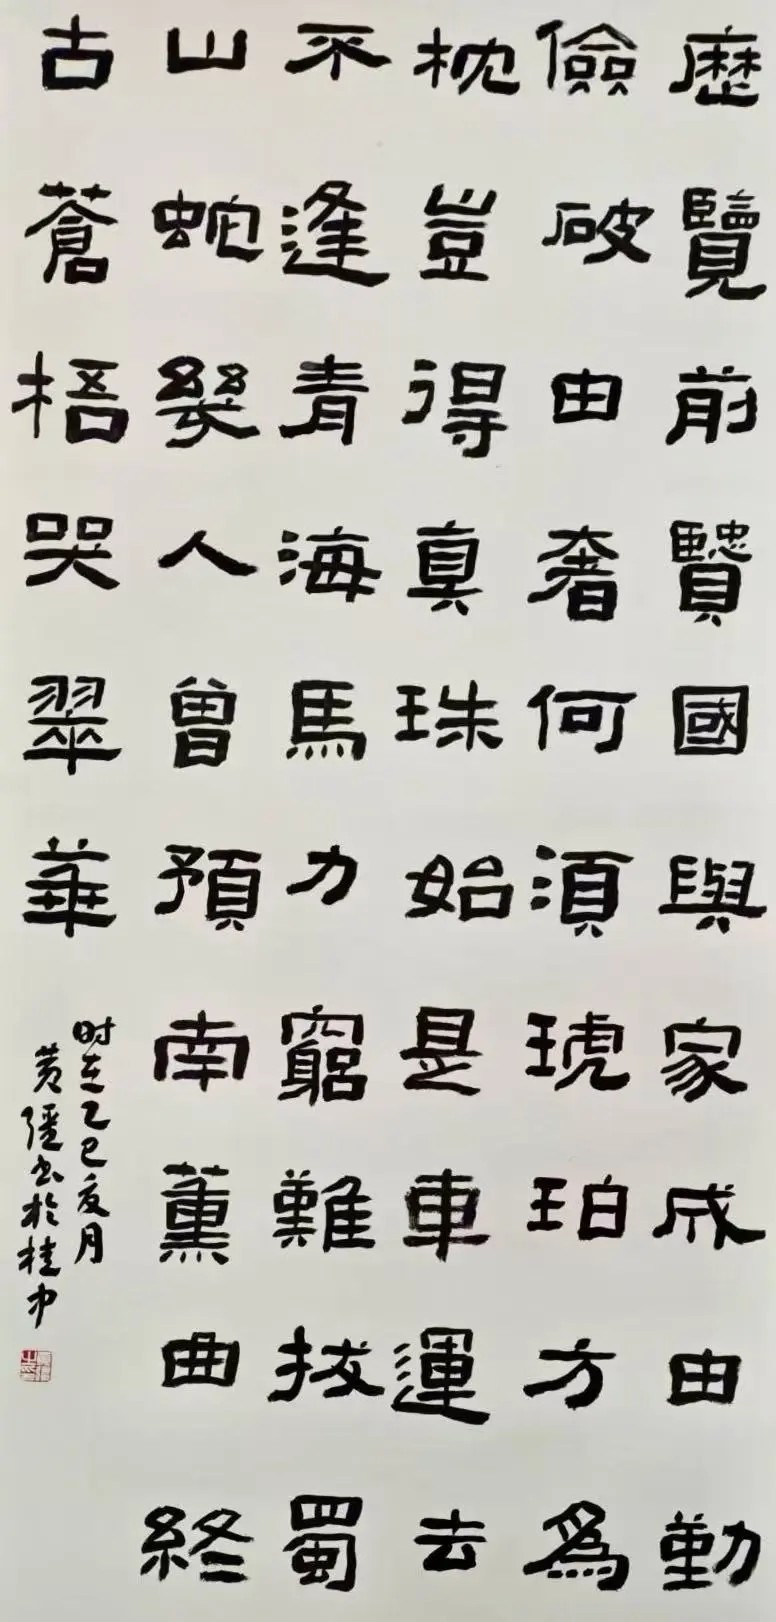 歷覽前賢國與家成由勤
儉破由奢何須琥珀方為
枕豈得真珠始是車運去
不逢青海馬力窮難拔蜀
山蛇幾人曾預南薰曲終
古蒼梧哭翠華
时在乙巳夏月
黄彊书於桂中